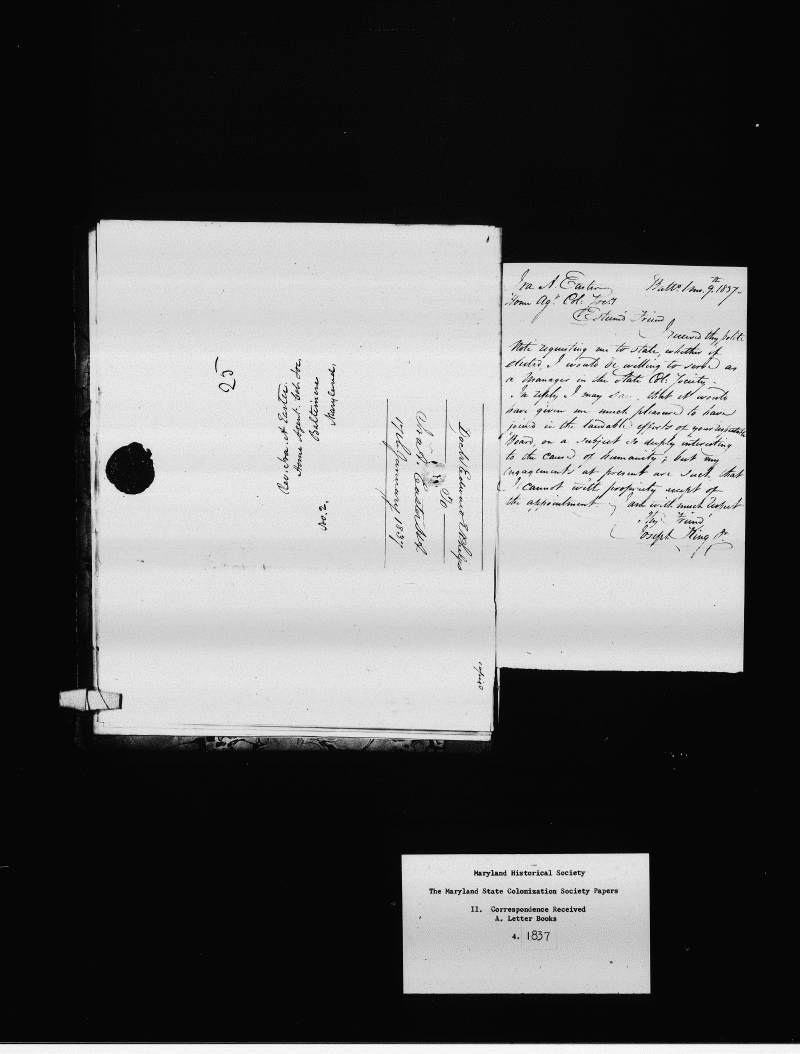 25
Rev. Ira A Easter.
Home Agent. Col. Soc.
Baltimore
Maryland.
No. 2.
To
Ira A. Easter Esq
17th January 1837
copied
Ira A Easter
Balto 1 mo. 9th 1837-
Home Agt Col: Soct
Esteem'd Friend
I received thy polite
Note requesting me to state, whether if
elected, I would be willing to serve as
a Manager in the State Col: Society.
In reply I may say, that it would
have given me much pleasure to have
joined in the laudable efforts of your
Board, on a subject so deeply interesting
to the cause of humanity; but my
engagements at present are such, that
I cannot with propriety accept of
the appointment I am with much respect
Thy Friend
Joseph King Jr
Maryland Historical Society
The Maryland State Colonization Society Papers
II. Correspondence Received
A. Letter Books
4. 1837